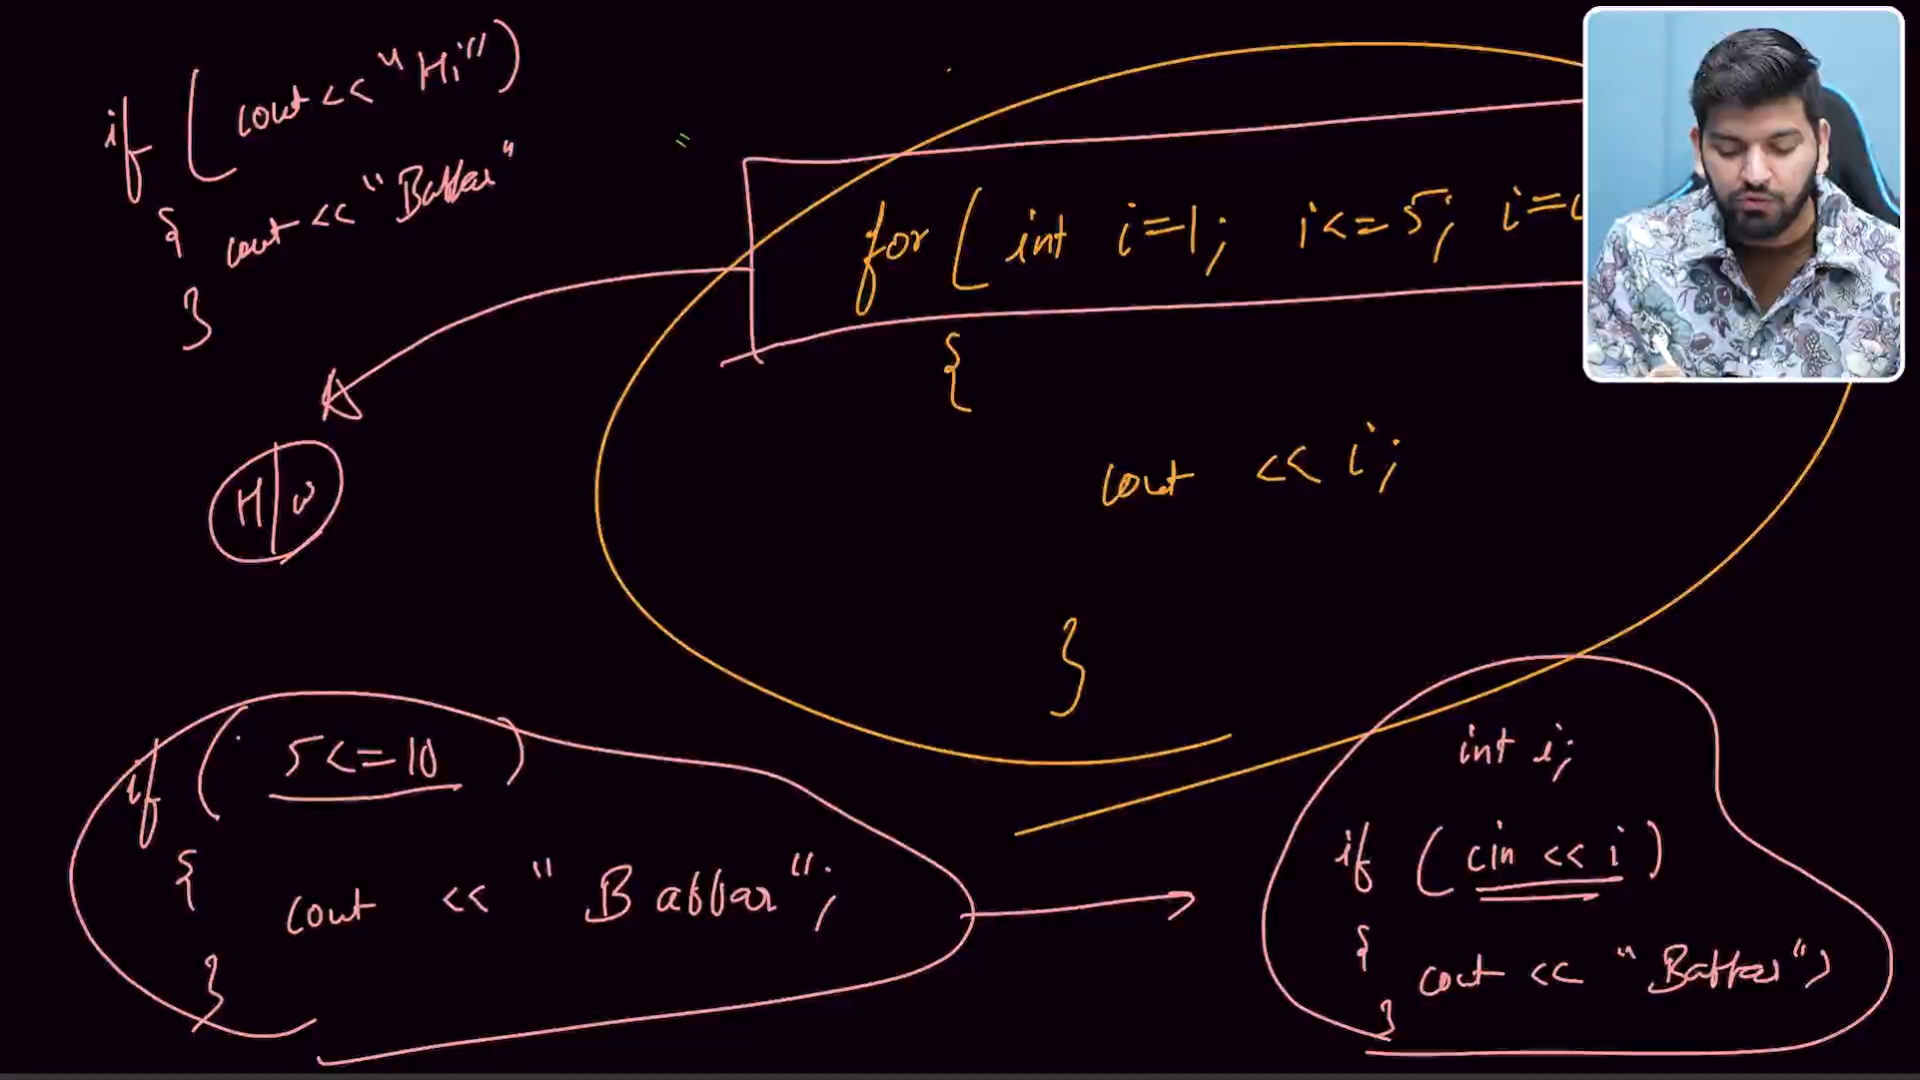 if (cout << "Hi")
{ cout << "Babbar"
}
for ( int i=1; i<=5; i=
{
cout << i;
}
H/W
if ( 5<=10 )
{
cout << "Babbar";
}
int i;
if (cin << i)
{ cout << "Babbar";
}